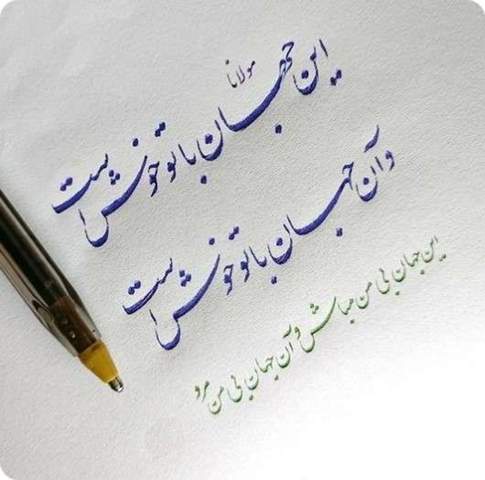 این جهان با تو خوش است
مولانا
وآن جهان با تو خوش است
این جهان بی من مباش و آن جهان بی من مرو